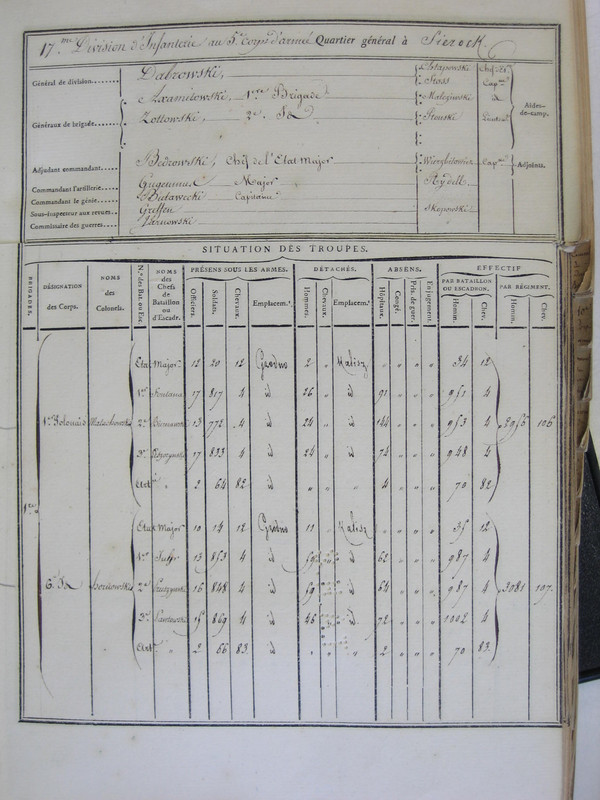 17.me Division d'Infanterie au 5.e corps d'armée Quartier général à Sierock.
Général de division....... Dabrowski,
Généraux de brigade... Axamitowski, 1.ere Brigade
Zottowski, 2.e Id
Aides-de-camp.
Adjudant commandant.... Chef de l'Etat Major Adjoints.
Commandant l'artillerie.... Gugenmus Major Rydell
Commandant le génie.... Capitaine
Sous-inspecteur aux revues.. Greffen
Commissaire des guerres....
SITUATION DES TROUPES.
BRIGADES. DÉSIGNATION des Corps. NOMS des Colonels. N.os des Bat. ou Esc. NOMS des Chefs de Bataillon ou d'Escadr. PRÉSENS SOUS LES ARMES. DÉTACHÉS. ABSENS. EFFECTIF
PAR BATAILLON OU ESCADRON. PAR RÉGIMENT.
Officiers. Soldats. Chevaux. Emplacem.t Hommes. Chevaux. Emplacem.t Hôpitaux. Congé. Pris. de guer. En jugement. Homm. Chev. Homm. Chev.
Etat Major 12 20 12 Grodno 2 " Kalisz " " " " 34 12
1.er Fontana 17 817 4 id 26 " id 91 " " " 951 4
1.er Polonais Matachowski 2.e 13 772 4 id 24 " id 144 " " " 953 4 2956 106
3.e 17 833 4 id 24 " id 74 " " " 948 4
Art " 2 64 82 id " " " 4 " " " 70 82
1.ere
Etat Major 10 14 12 Grodno 11 " Kalisz " " " " 35 12
1.er 13 853 4 id 59 id 62 " " " 987 4
6. Id 2.e 16 848 4 id 59 id 64 " " " 987 4 3081 107
3.e 15 869 4 id 46 id 72 " " " 1002 4
Art " 2 66 83 id " " 2 " " " 70 83